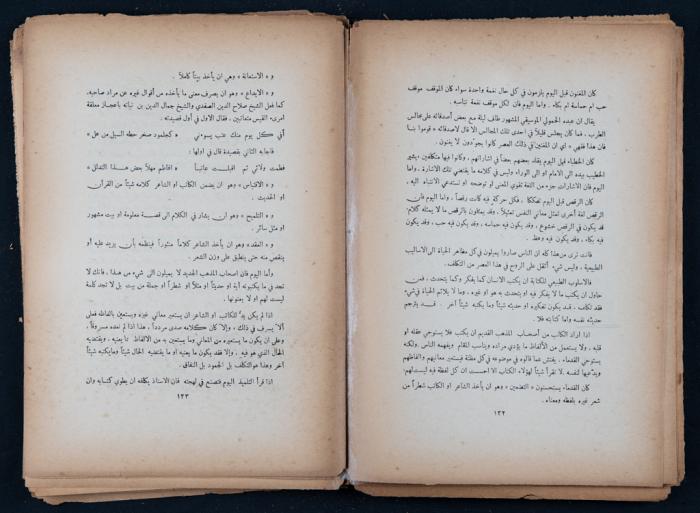 كان المغنون قبل اليوم يلزمون في كل حال نغمة واحدة سواء كان الموقف موقف
حب ام حماسة ام بكاء . واما اليوم فان لكل موقف نغمة تناسبه .
يقال ان عبده الحمولي الموسيقي المشهور طاف ليلة مع بعض أصدقائه على مجالس
الطرب ، فما كان يجلس قليلاً في احدى تلك المجالس الا قال لاصدقائه « قوموا بنا
فان هذا فقهي » اي ان المغنين في ذلك العصر كانوا يجودون لا يغنون .
كان الخطباء قبل اليوم يقلد بعضهم بعضاً في اشاراتهم ، وكانوا فيها متكلفين، يشير
الخطيب بيده الى الامام او الى الوراء وليس في كلامه ما يقتضي تلك الاشارة . واما
اليوم فان الاشارات جزء من اللغة تقوي المعنى او توضحه او تستدعي الانتباه اليه .
كان الرقص قبل اليوم تفككا ، فكل حركة فيه كانت رقصاً ، واما اليوم فان
الرقص لغة أخرى تمثل معاني النفس تمثيلاً . وقد يمثلون بالرقص ما لا يمثله كلام.
قد يكون في الرقص خشوع ، وقد يكون فيه حماسه ، وقد يكون فيه حب ، وقد يكون
فيه بكاء ، وقد يكون فيه وعظ .
فانت ترى من هذا كله ان الناس صاروا يميلون في كل مظاهر الحياة الى الاساليب
الطبيعية ، وليس شيء أثقل على الروح في هذا العصر من التكلف.
فالاسلوب الطبيعي للكتابة ان يكتب الانسان كما يفكر وكما يتحدث ، فمن
حاول ان يكتب ما لا يفكر فيه او يتحدث به هو او غيره ، وما لا يلائم الحياة في شيء
فقد تكلف . قد يكون تفكيره او حديثه شيئاً وما يكتبه شيئاً آخر . قد يترجم
حديثه نفسه واما كتابته فلا .
اذا اراد الكاتب من أصحاب المذهب القديم ان يكتب فلا يستوحي عقله او
قلبه ، ولا يستعمل من الألفاظ ما يؤدي مراده ويناسب المقام ويفهمه الناس ولكنه
يستوحي القدماء ، يفتش عما قالوه في موضوعه في كل مظنة فيستعير معانيهم والفاظهم
ويدعيها لنفسه . لا تقرأ شيئاً لهؤلاء الكتاب الا احسست ان كل لفظة فيه ليست لهم.
كان القدماء يستحسنون « التضمين » وهو ان يأخذ الشاعر او الكاتب شطراً من
شعر غيره بلفظه ومعناه .
١٣٢
و « الاستعانة » وهي ان يأخذ بيتاً كاملاً .
و « الايداع » وهو ان يصرف معنى ما يأخذه من أقوال غيره عن مراد صاحبه،
كما فعل الشيخ صلاح الدين الصفدي والشيخ جمال الدين بن نباته باعجاز معلقة
امرىء القيس متعاتبين . فقال الاول في أول قصيدته :
أفي كل يوم منك عتب يسوءني « كجلمود صخر حطه السيل من عل »
فاجابه الثاني بقصيدة قال في اولها :
فطمت ولائي ثم اقبلت عاتباً « افاطم مهلاً بعض هذا التدلل »
و « الاقتباس » وهو ان يضمن الكاتب او الشاعر كلامه شيئاً من القرآن
او الحديث .
و « التلميح » وهو ان يشار في الكلام الى قصة معلومة او بيت مشهور
او مثل سائر .
و « العقد » وهو ان يأخذ الشاعر كلاماً منثوراً فينظمه بأن يزيد عليه أو
ينقص منه حتى ينطبق على وزن الشعر .
وأما اليوم فان اصحاب المذهب الجديد لا يميلون الى شيء من هذا . فانك لا
تجد في ما يكتبونه آية او حديثاً او مثلاً او شطراً او جملة من بيت بل لا تجد كلمة
ليست لهم او لا يعنونها .
اذا لم يكن بدّ للكاتب او الشاعر ان يستعير معاني غيره ويستعين بالفاظه فعلى
ألا يسرف في ذلك ، والا كان كلامه صدى مردداً ، هذا اذا لم نعده مسروقاً ،
وعلى ان يكون ما يستعيره من المعاني وما يستعين به من الالفاظ مما يعنيه ، ويقتضيه
الحال الذي هو فيه . والا فقد يكون ما يعنيه او ما يقتضيه الحال شيئاً وما يكتبه شيئاً
آخر وهذا هو التكلف بل الجمود بل النفاق .
اذا قرأ التلميذ اليوم فتصنع في لهجته فان الاستاذ يكلفه ان يطوي كتابه وان
١٣٣